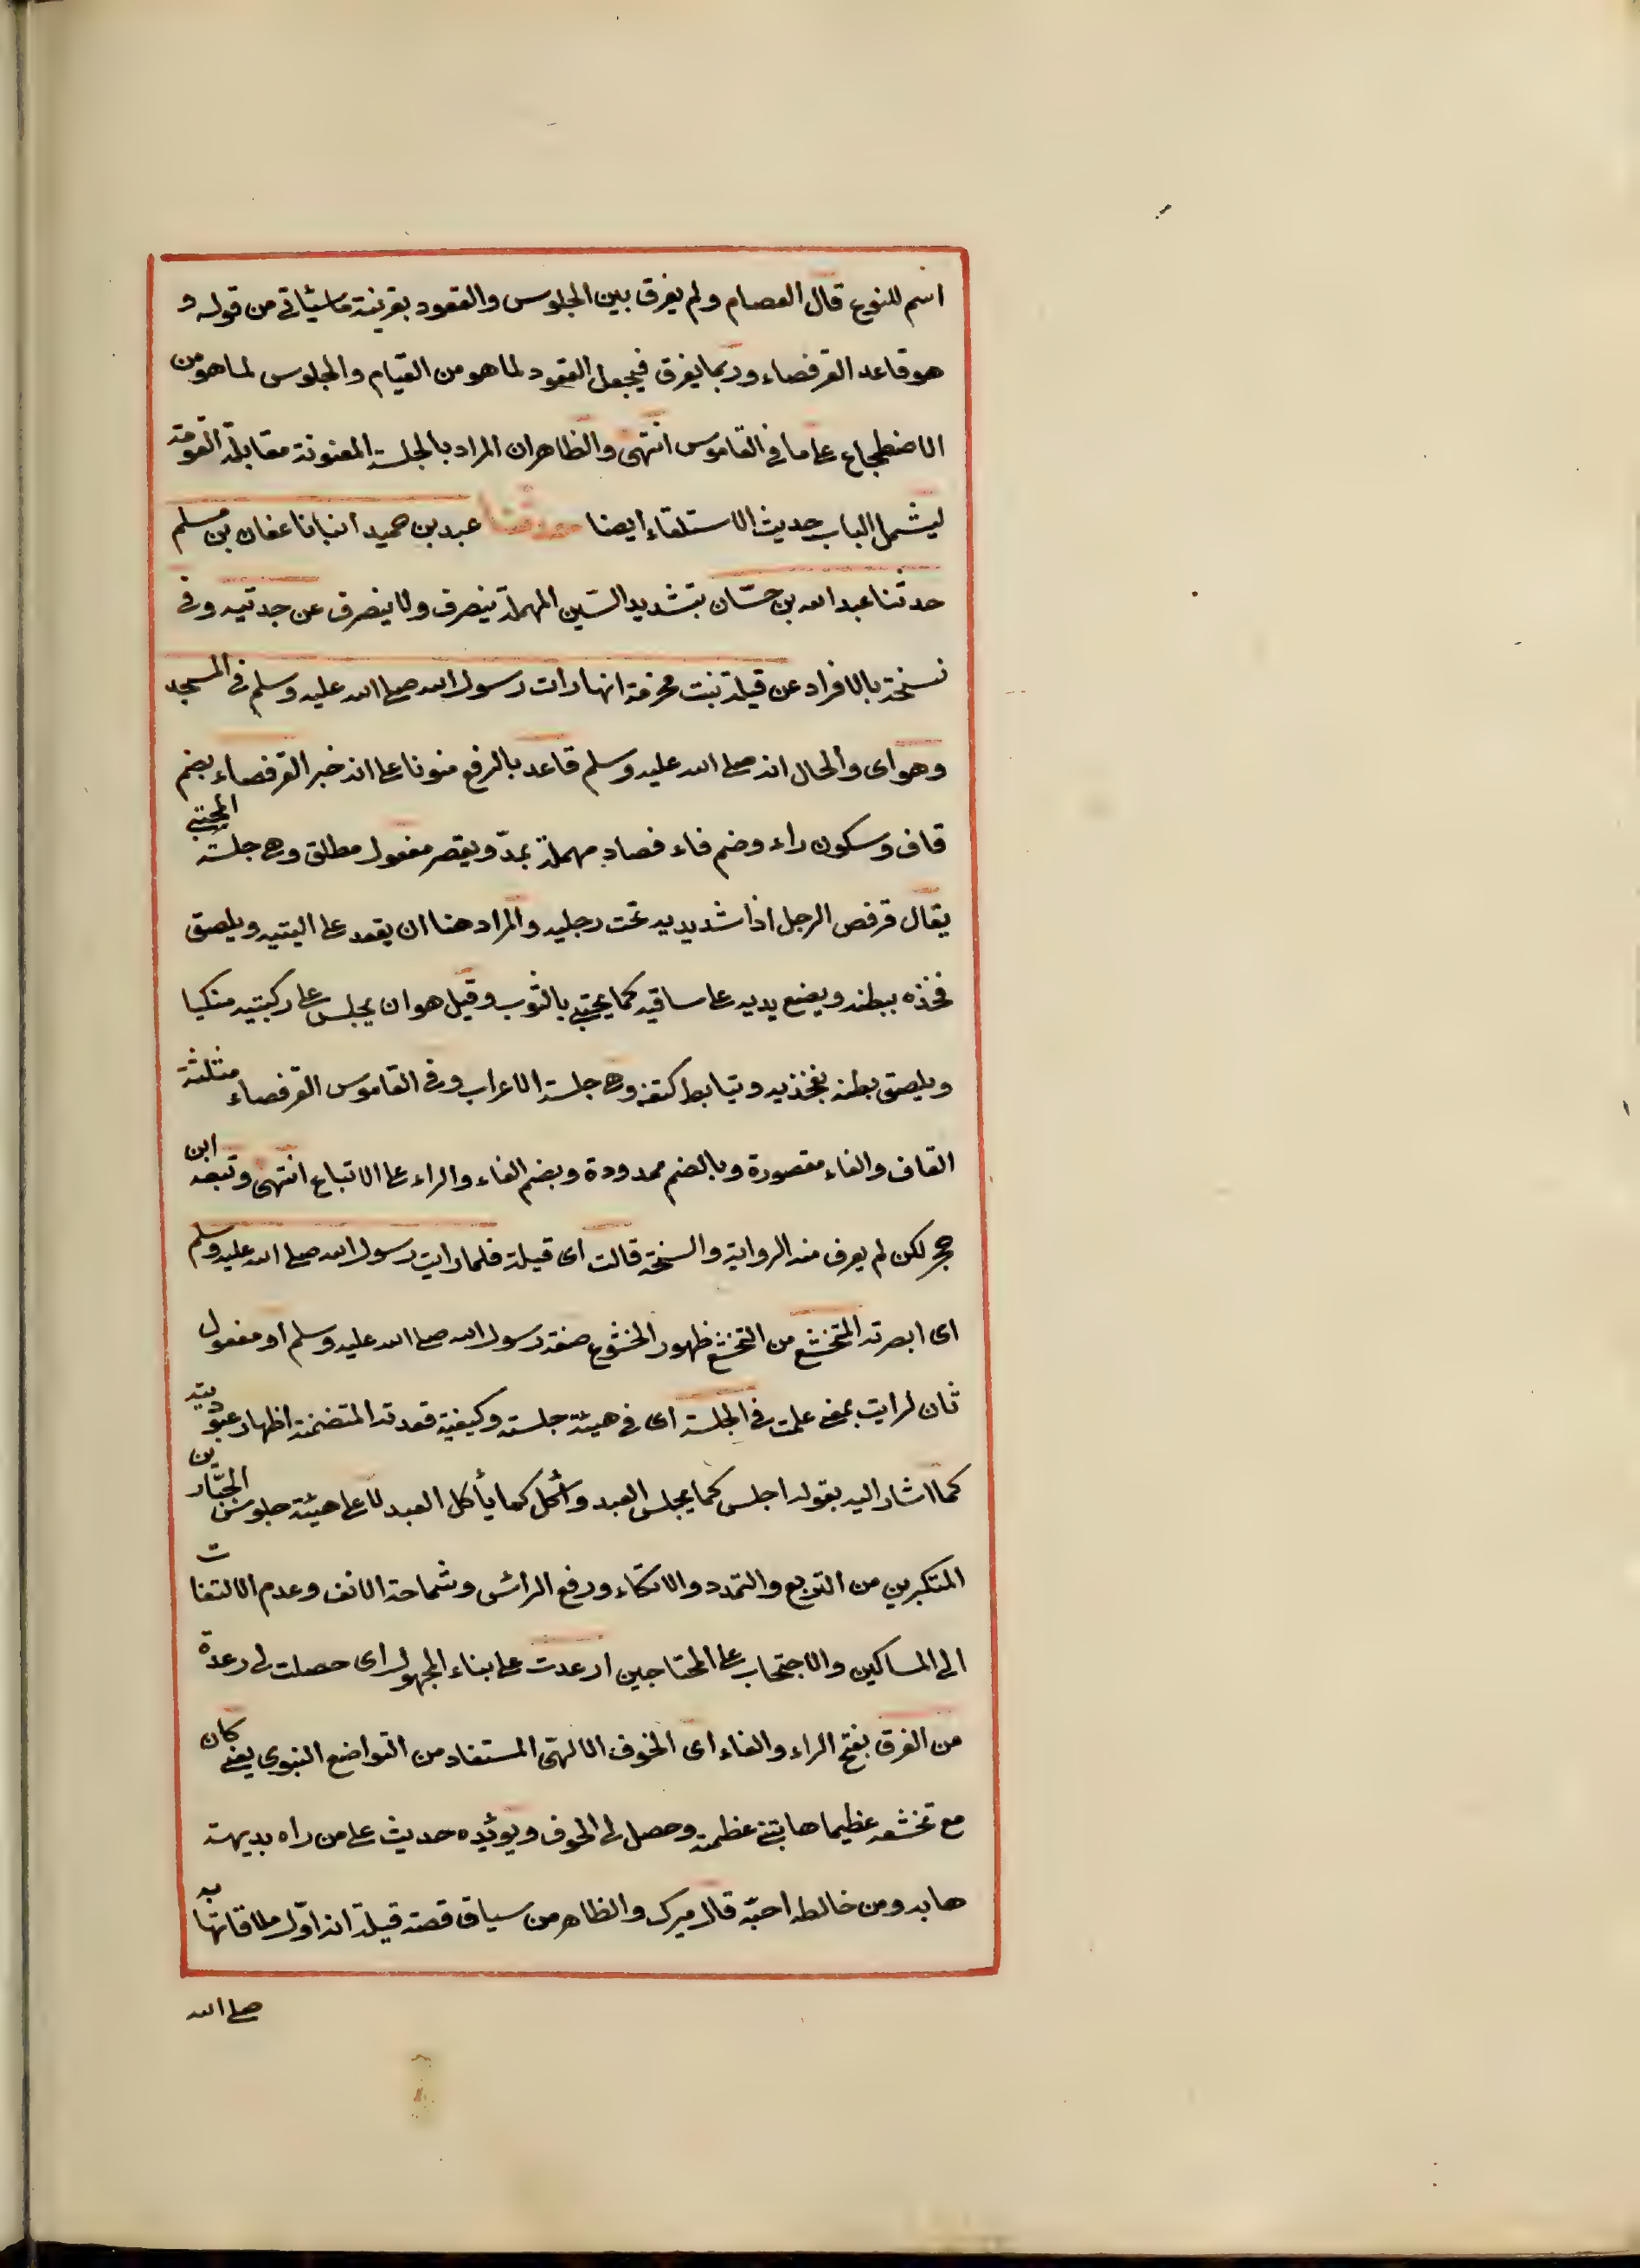 اسم للنوع قال العصام ولم يفرق بين الجلوس والقعود بقرينة ماسيئاتى من قوله و
هو قاعد القرفصاء وربما يفرق فيجعل القعود لما هو من القيام والجلوس لما هو من
الاضطجاع على ما فى القاموس انتهى والظاهر ان المراد بالجلسة المعنونة مقابلة القومة
ليشمل الباب حديث الاستلقاء ايضا حدثنا عبد بن حميد انبانا عفان بن مسلم
حدثنا عبد الله بن حسّان بتشديد السّين المهملة ينصرف ولا ينصرف عن جدتيه وفى
نسخة بالافراد عن قيلة بنت مخرمة انها رات رسول الله صلى الله عليه وسلم فى المسجد
وهو اى والحال انه صلى الله عليه وسلم قاعد بالرفع منونا على انه خبر القرفصاء بضم
قاف وسكون راء وضم فاء فصاد مهملة بمدّ ويقصر مفعول مطلق وهى جلسة المحتبى
يقال قرفص الرجل اذا شد يديه تحت رجليه والمراد هنا ان يقعد على اليتيه ويلصق
فخذه ببطنه ويضع يديه على ساقيه كما يحتبى بالثوب وقيل هو ان يجلس على ركبتيه منكبا
ويلصق بطنه بفخذيه ويتابط كتفه وهى جلسة الاعراب وفى القاموس القرفصاء مثلثة
القاف والفاء مقصورة وبالضم ممدودة وبضم الفاء والراء على الاتباع انتهى وتبعه ابن
حجر لكن لم يعرف منه الرواية والنسخة قالت اى قيلة فلما رايت رسول الله صلى الله عليه وسلم
اى ابصرته المتخشع من التخشع ظهور الخشوع صفة رسول الله صلى الله عليه وسلم او مفعول
ثان لرايت بمعنى علمت فى الجلسة اى فى هيئة جلسته وكيفية قعدته المتضمنة اظهار عبوديته
كما اشار اليه بقوله اجلس كما يجلس العبد وأكل كما يأكل العبد لا على هيئة جلوس الجبّارين
المتكبرين من التربع والتمدد والاتكاء ورفع الرائس وشماخة الانف وعدم الالتفات
الى المساكين والاحتجاب على المحتاجين ارعدت على بناء المجهول اى حصلت لى رعدة
من الفرق بفتح الراء والفاء اى الخوف الالهى المستفاد من التواضع النبوى يعنى كان
مع تخشعه عظيما هابتنى عظمته وحصل لى الخوف ويوئيده حديث على من راه بديهة
هابه ومن خالطه احبّه قال ميرك والظاهر من سياق قصة قيلة انه اوّل ملاقاتها به
صلى الله